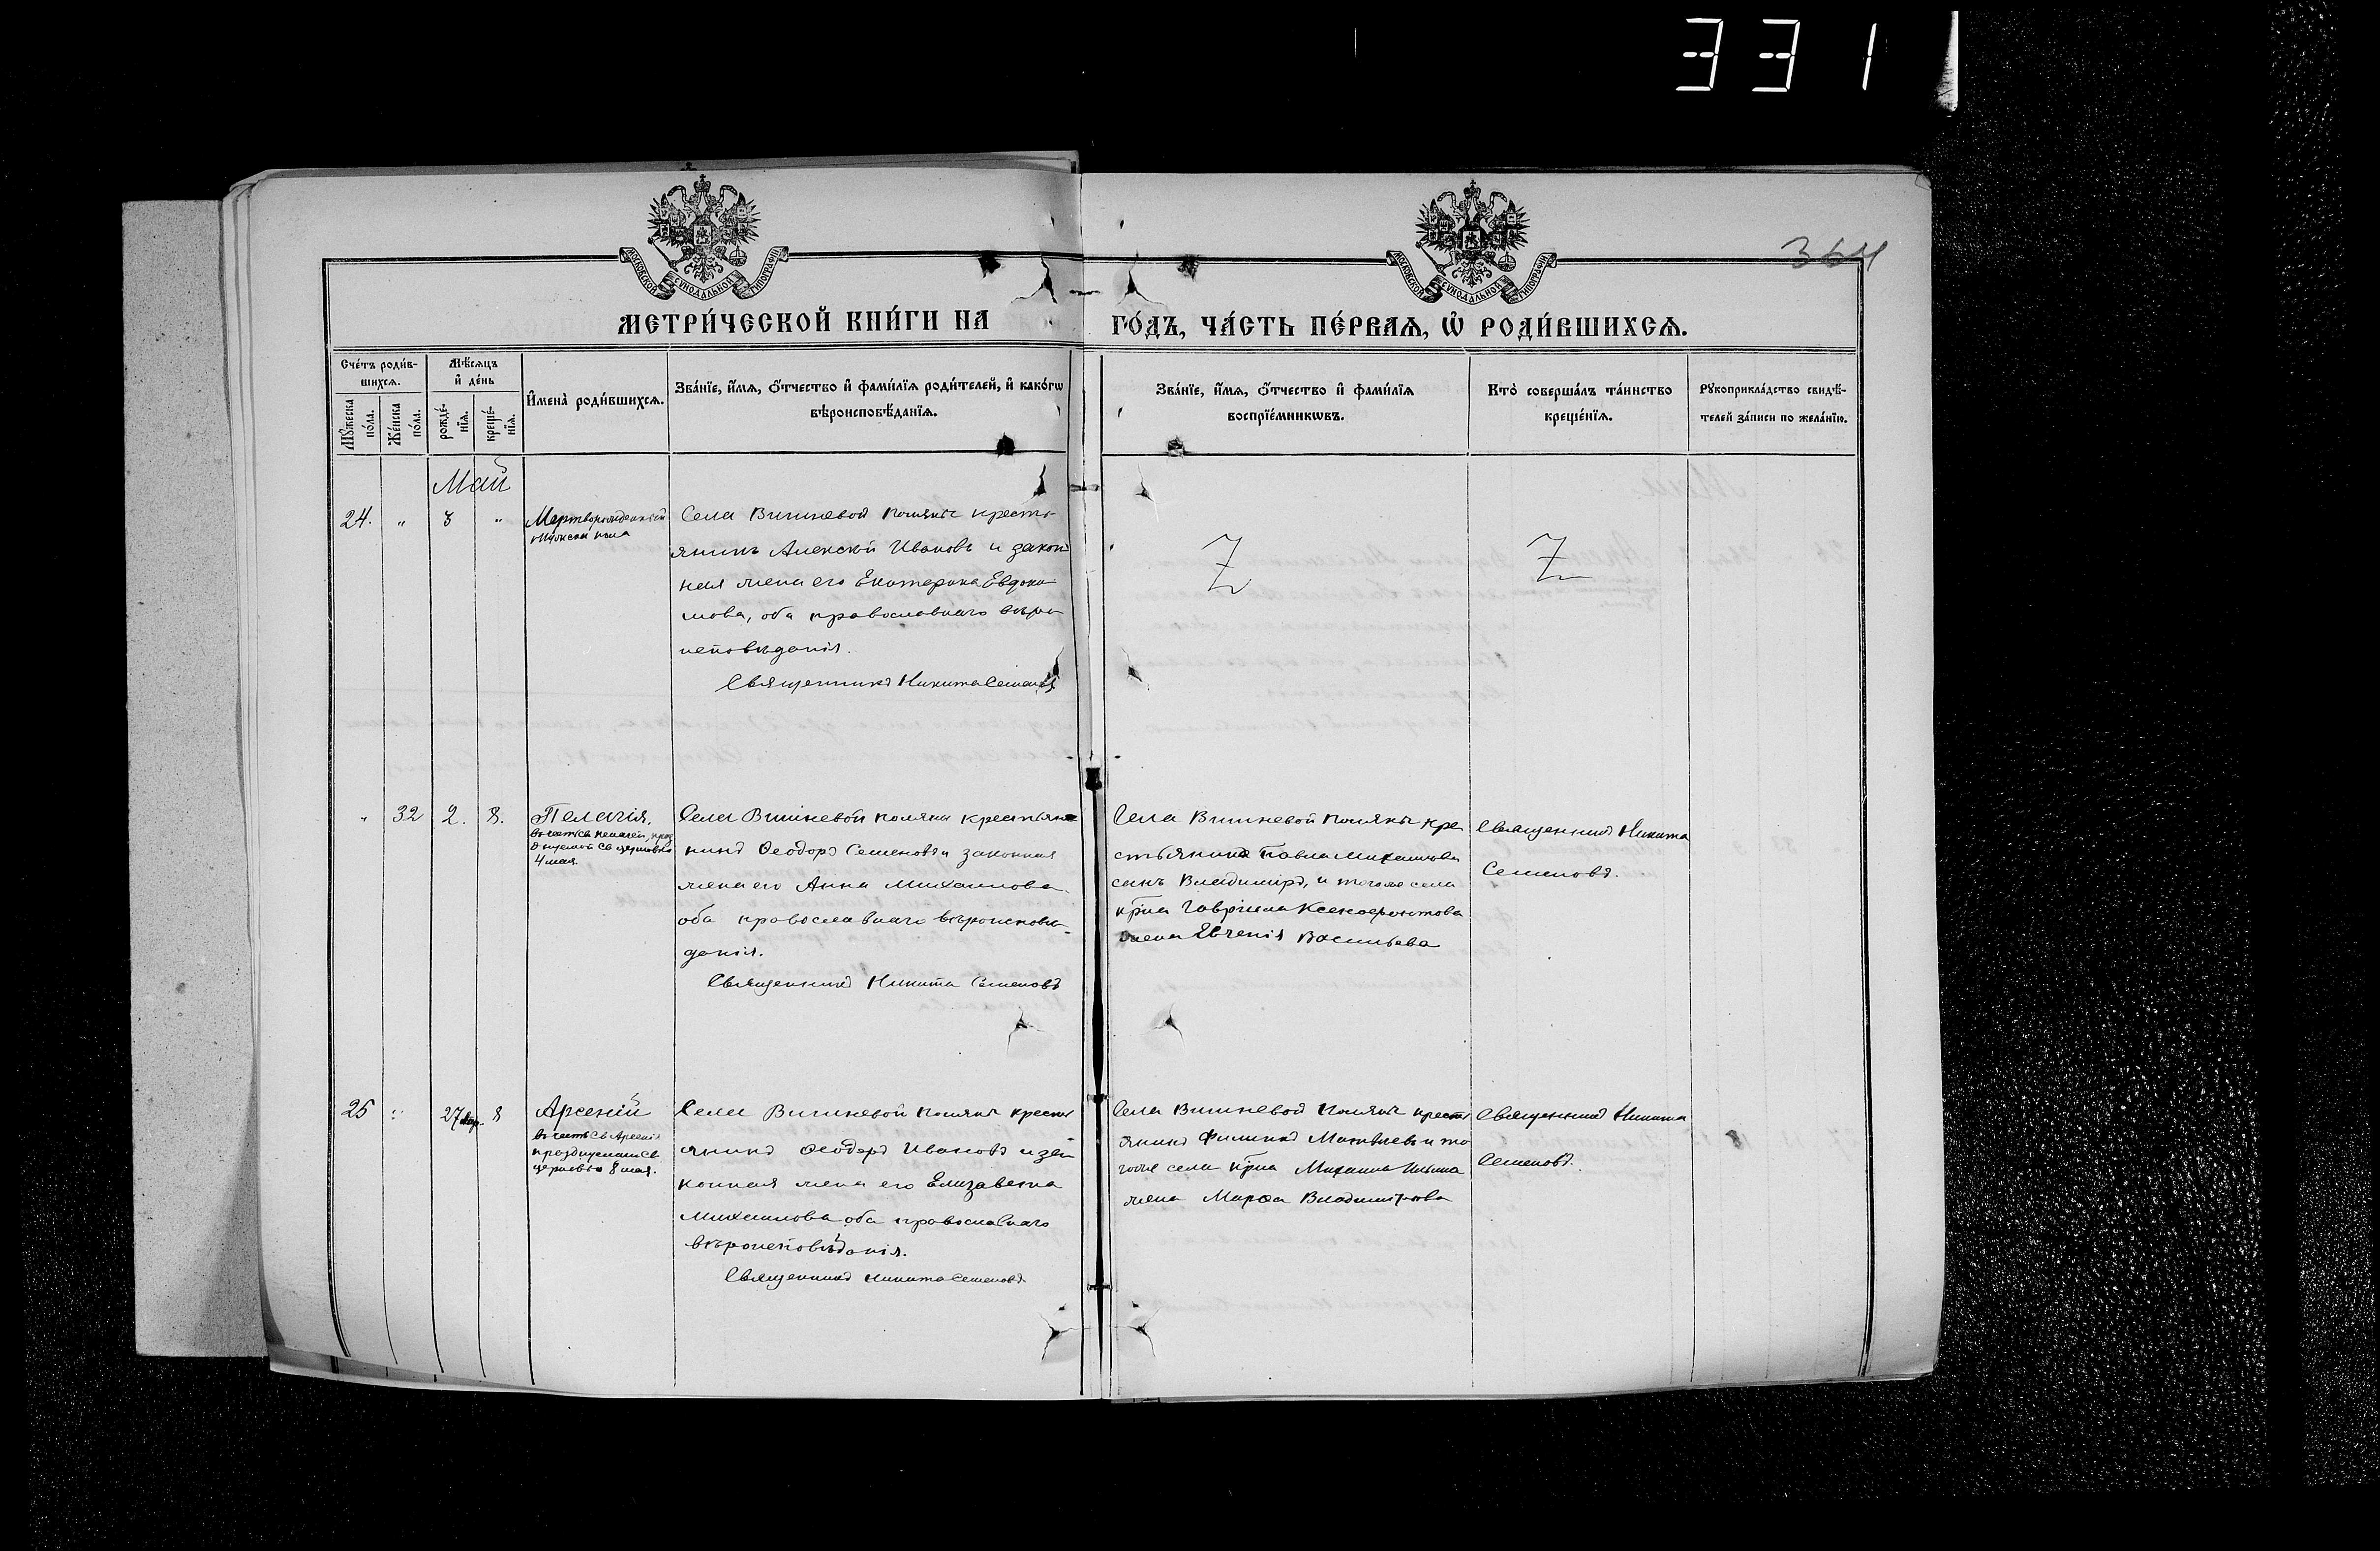 331
364
МОСКОВСКОЙ СѴНОДАЛЬНОЙ ТИПОГРАФІИ
МОСКОВСКОЙ СѴНОДАЛЬНОЙ ТИПОГРАФІИ
МЕТРИ́ЧЕСКОЙ КНИ́ГИ НА ГО́ДЪ, ЧА́СТЬ ПЕ́РВАѦ, Ѡ҆ РОДИ́ВШИХСѦ.
Сче́тъ роди́в-
шихсѧ.
Мꙋ́жеска по́ла.
Же́нска по́ла.
Мѣ́сѧцъ
и҆ де́нь
рожде́-
нїѧ.
креще́-
нїѧ.
И҆мена̀ роди́вшихсѧ.
Зва́нїе, и҆́мѧ, ѻ҆́тчество и҆ фами́лїѧ роди́телей, и҆ како́гѡ
вѣроисповѣ́данїѧ.
Зва́нїе, и҆́мѧ, ѻ҆́тчество и҆ фами́лїѧ
воспрїе́мникѡвъ.
Кто̀ соверша́лъ та́инство
креще́нїѧ.
Рꙋкоприкла́дство свидѣ́-
телей за́писи по жела́нїю.
Май
24. " 3 "
Мертворожденный
мужеска пола
Села Вишневой Поляны кресть-
янинъ Алексѣй Ивановъ и закон
ная жена его Екатерина Евдоки-
мова, оба православнаго вѣро-
исповѣданія.
Священникъ Никита Семеновъ
" 32 2. 8.
Пелагія,
въ честь св Пелагеи, праз
д. 
4 мая.
Села Вишневой Поляны крестьяни
нинъ Ѳеодоръ Семеновъ и законная
жена его Анна Михаилова
оба православнаго вѣроисповѣ-
данія.
Священникъ Никита Семеновъ
Села Вишневой Поляны кре
стьянина Павла Михаилова
сынъ Владиміръ, и того же села
кр̃на Гавріила Ксенофонтова
жена Евгенія Васильева
Священникъ Никита
Семеновъ.
25 " 27 апр. 8
Арсеній
въ честь св Арсенія
празднуемаго св
церковью 8 мая.
Села Вишневой Поляны кресть
янинъ Ѳеодоръ Ивановъ и за
конная жена его Елизавета
Михаилова оба православнаго
вѣроисповѣданія.
Священникъ Никита Семеновъ
Села Вишневой Поляны кресть
янинъ Филиппъ Матвѣевъ и то
гоже села кр̃на Михаила Ильина
жена Марѳа Владимірова
Священникъ Никита
Семеновъ.